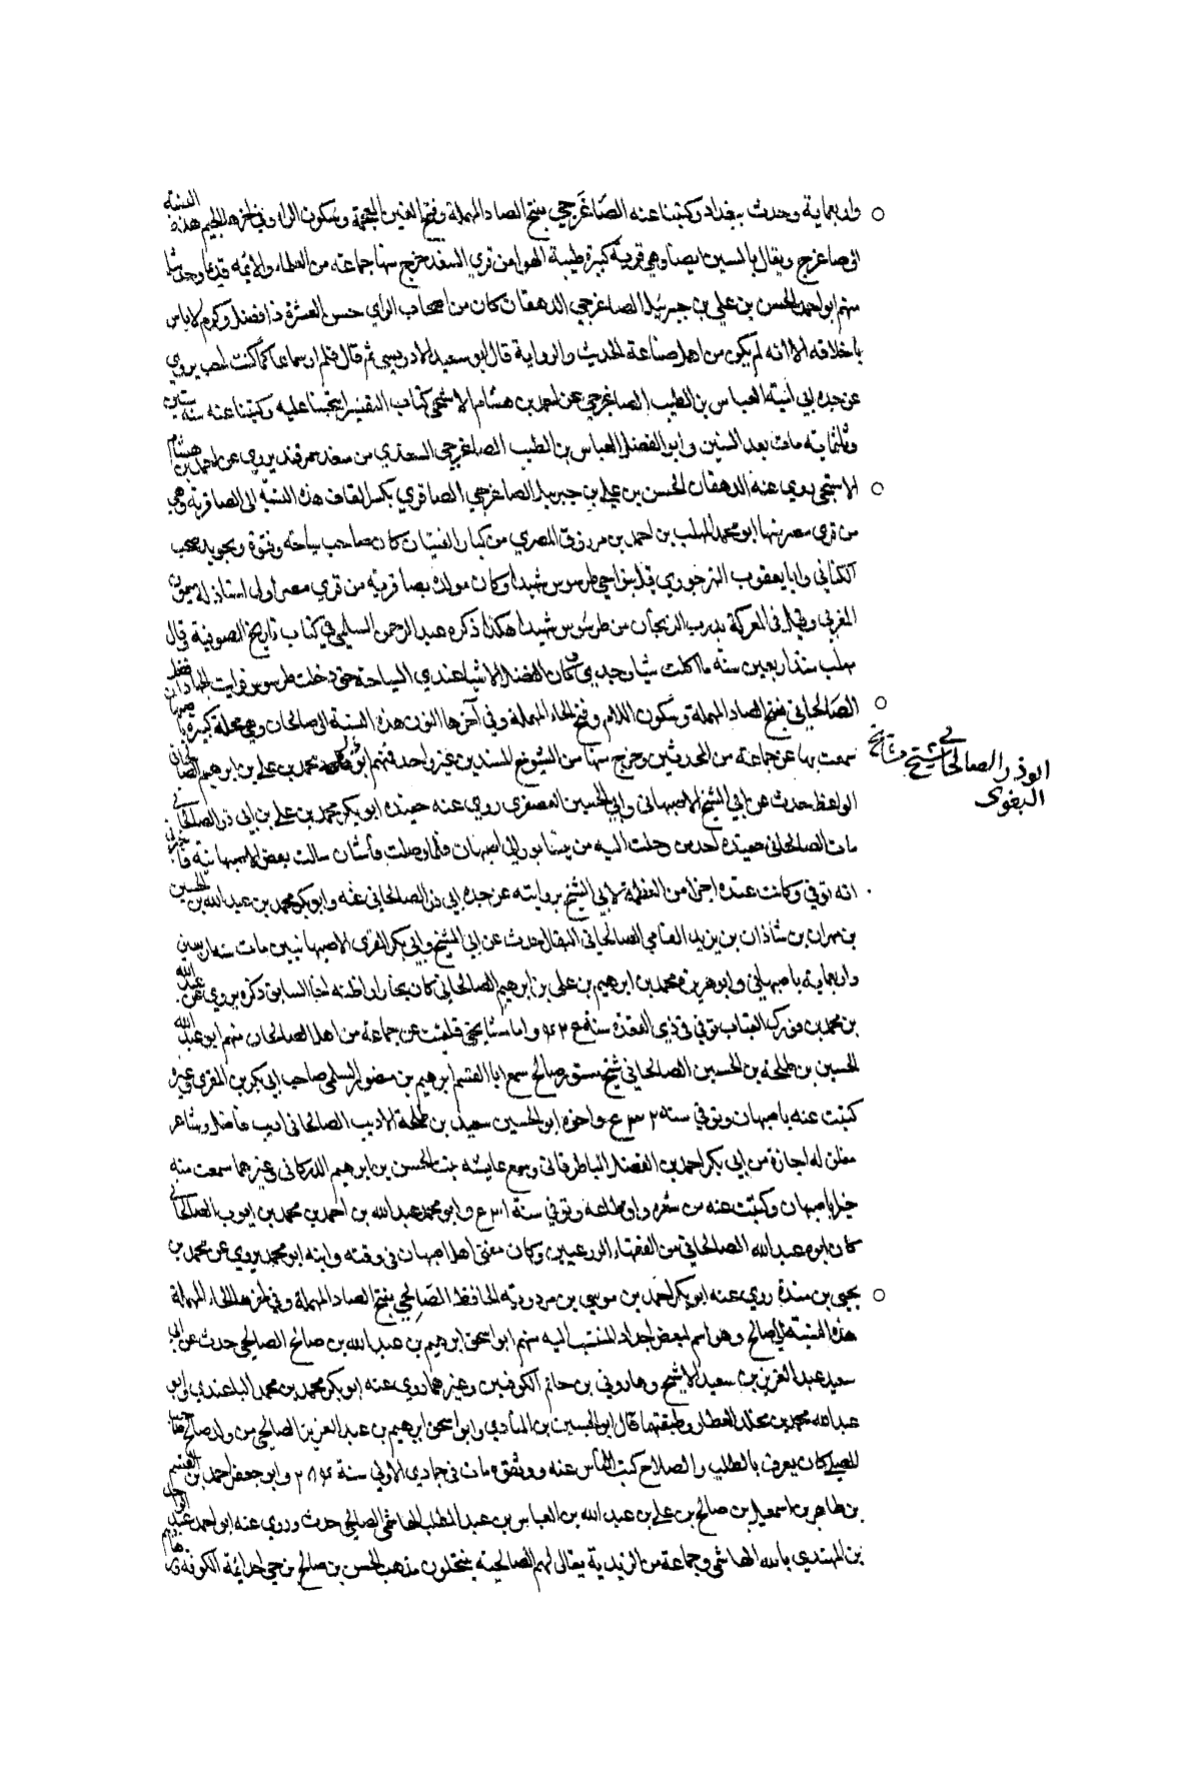 واربعماية وحدث ببغداد وكتبنا عنه الصَاغَرجي بفتح الصاد المهملة وفتح الغين المعجمة وسكون الراء وفي اخرها الجيم هذه النسبة
الى صاغرج ويقال بالسين ايضا وهي قرية كبيرة طيبة الهوا من قري السغد خرج منها جماعة من العلماء والائمة قديما وحديثا
منهم ابو احمد الحسن بن علي بن جبريل الصاغرجي الدهقان كان من اصحاب الراي حسن العشرة ذا فضل وكرم لا باس
باخلاقه الا انه لم يكن من اهل صناعة الحديث والرواية قال ابو سعيد الادريسي ثم قال فلم ار سماعا كما كنت احب يروي
عن جده ابي امه العباس بن الطيب الصاغرجي عن احمد بن هشام الاشتجي كتاب التفسير انتخبنا عليه وكتبنا عنه سنة ستين
وثلثماية مات بعد الستين وابو الفضل العباس بن الطيب الصاغرجي السغدي من سغد سمرقند يروي عن احمد بن هشام
الاشتجي روي عنه الدهقان الحسن بن علي بن جبريل الصاغرجي الصاقري بكسر القاف هذه النسبة الى الصاقرية وهي
من قري مصر منها ابو محمد المهلب بن احمد بن مرزوق المصري من كبار الفتيان كان صاحب سياحة وفتوة وتجويد صحب
الكتاني وابا يعقوب النهرجوري قتل بنواحي طرسوس شهيدا وكان مولده بصاقرية من قري مصر اول استاذ له ميمون
المغربي وقتل في المعركة بدرب الدنجان من طرسوس شهيدا هكذا ذكره عبد الرحمن السلمي في كتاب تاريخ الصوفية قال
مهلب منذ اربعين سنة ما اكلت شيا وحدي وكان افضل الاشيا عندي السياحة حتى دخلت طرسوس فرايت الجهاد افضل
الصَالحاني بفتح الصاد المهملة وسكون اللام وفتح الحاء المهملة وفي آخرها النون هذه النسبة الى صالحان وهي محلة كبيرة باصبهان
سمعت بها عن جماعة من المحدثين وخرج منها من الشيوخ المسندين غير واحد فمنهم ابو ذر محمد بن علي بن ابرهيم الصالحاني
الواعظ حدث عن ابي الشيخ الاصبهاني وابي الحسين العصفري روي عنه حفيده ابو بكر محمد بن علي بن ابي ذر الصالحاني
مات الصالحاني حفيده احد من رحلت اليه من نيسابور الى اصبهان فلما وصلت قاشان سالت بعض الاصبهانية فاخبرني
انه توفي وكانت عنده اجزا من العظمة لابي الشيخ بروايته عن جده ابي ذر الصالحاني عنه وابو بكر محمد بن عبد الله بن الحسين
بن مهران بن شاذان بن يزيد الفامي الصالحاني البقال حدث عن ابي الشيخ وابي بكر المقري الاصبهانيين مات سنة اربعين
واربعماية باصبهان وابو هريرة محمد بن ابرهيم بن علي بن ابرهيم الصالحاني كان نجارا واظنه اخا السابق ذكره يروي عن عبد الله
بن محمد بن فورك القباب توفي في ذي القعدة سنة واما مشايخي فلقيت عن جماعة من اهل الصالحان منهم ابو عبد الله
الحسين بن طلحة بن الحسين الصالحاني شيخ مستور صالح سمع ابا القسم ابرهيم بن منصور السلمي صاحب ابي بكر بن المقري وغيره
كتبت عنه باصبهان وتوفي سنة واخوه ابو الحسين سعيد بن طلحة الاديب الصالحاني اديب فاضل وشاعر
مفلق له اجازة من ابي بكر احمد بن الفضل الباطرقاني وسمع عايشه بنت الحسن بن ابرهيم الوركاني وغيرهما سمعت منه
خبرا باصبهان وكتبت عنه من شعره وتوفي سنة وابو محمد عبد الله بن احمد بن محمد بن ايوب الصالحاني
كان ابوه عبد الله الصالحاني من الفقهاء الورعين وكان مفتي اهل اصبهان في وقته وابنه ابو محمد يروي عن محمد بن
يحيى بن مندة روي عنه ابو بكر احمد بن موسي بن مردويه الحافظ الصَالحي بفتح الصاد المهملة وفي اخرها الحاء المهملة
هذه النسبة الي صالح وهو اسم لبعض اجداد المنتسب اليه منهم ابو اسحق ابرهيم بن عبد الله بن صالح الصالحي حدث عن ابي
سعيد عبد العزيز بن سعيد الاشج وهارون بن حاتم الكوفيين وغيرهما روي عنه ابو بكر محمد بن محمد الباغندي وابو
عبد الله محمد بن مخلد العطار وطبقتهما قال ابو الحسين بن المنادي وابو اسحق ابرهيم بن عبد العزيز الصالحي من ولد صالح صاحب
المصلى كان يعرف بالطلب والصلاح كتب الناس عنه ووثقوه مات في جمادي الاولي سنة ٢٨٤ وابو جعفر احمد بن القسم
بن طاهر بن اسمعيل بن صالح بن علي بن عبد الله بن العباس بن عبد المطلب الهاشمي الصالحي حدث وروي عنه ابو احمد عبد الواحد
بن المهتدي بالله الهاشمي وجماعة من الزيدية يقال لهم الصالحية ينتحلون مذهب الحسن بن صالح بن حي احد ائمة الكوفة
ابو ذر الصالحاني شيخ مشايخ
البغوي